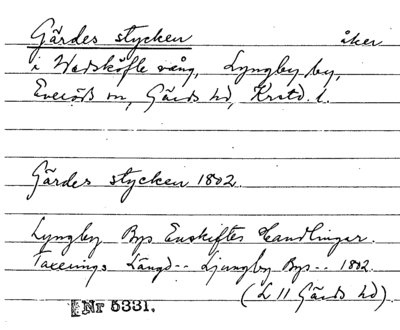 Gärdes stycken åker
i Wadsköfle vång, Lyngby by,
Everöds sn, Gärds hd, Krstd. l.
Gärdes stycken 1802.
Lyngby Bys Enskiftes Handlingar.
Taxerings Längd -- Ljungby Bys -- 1802.
(L 11 Gärds hd)
Nr 5331.